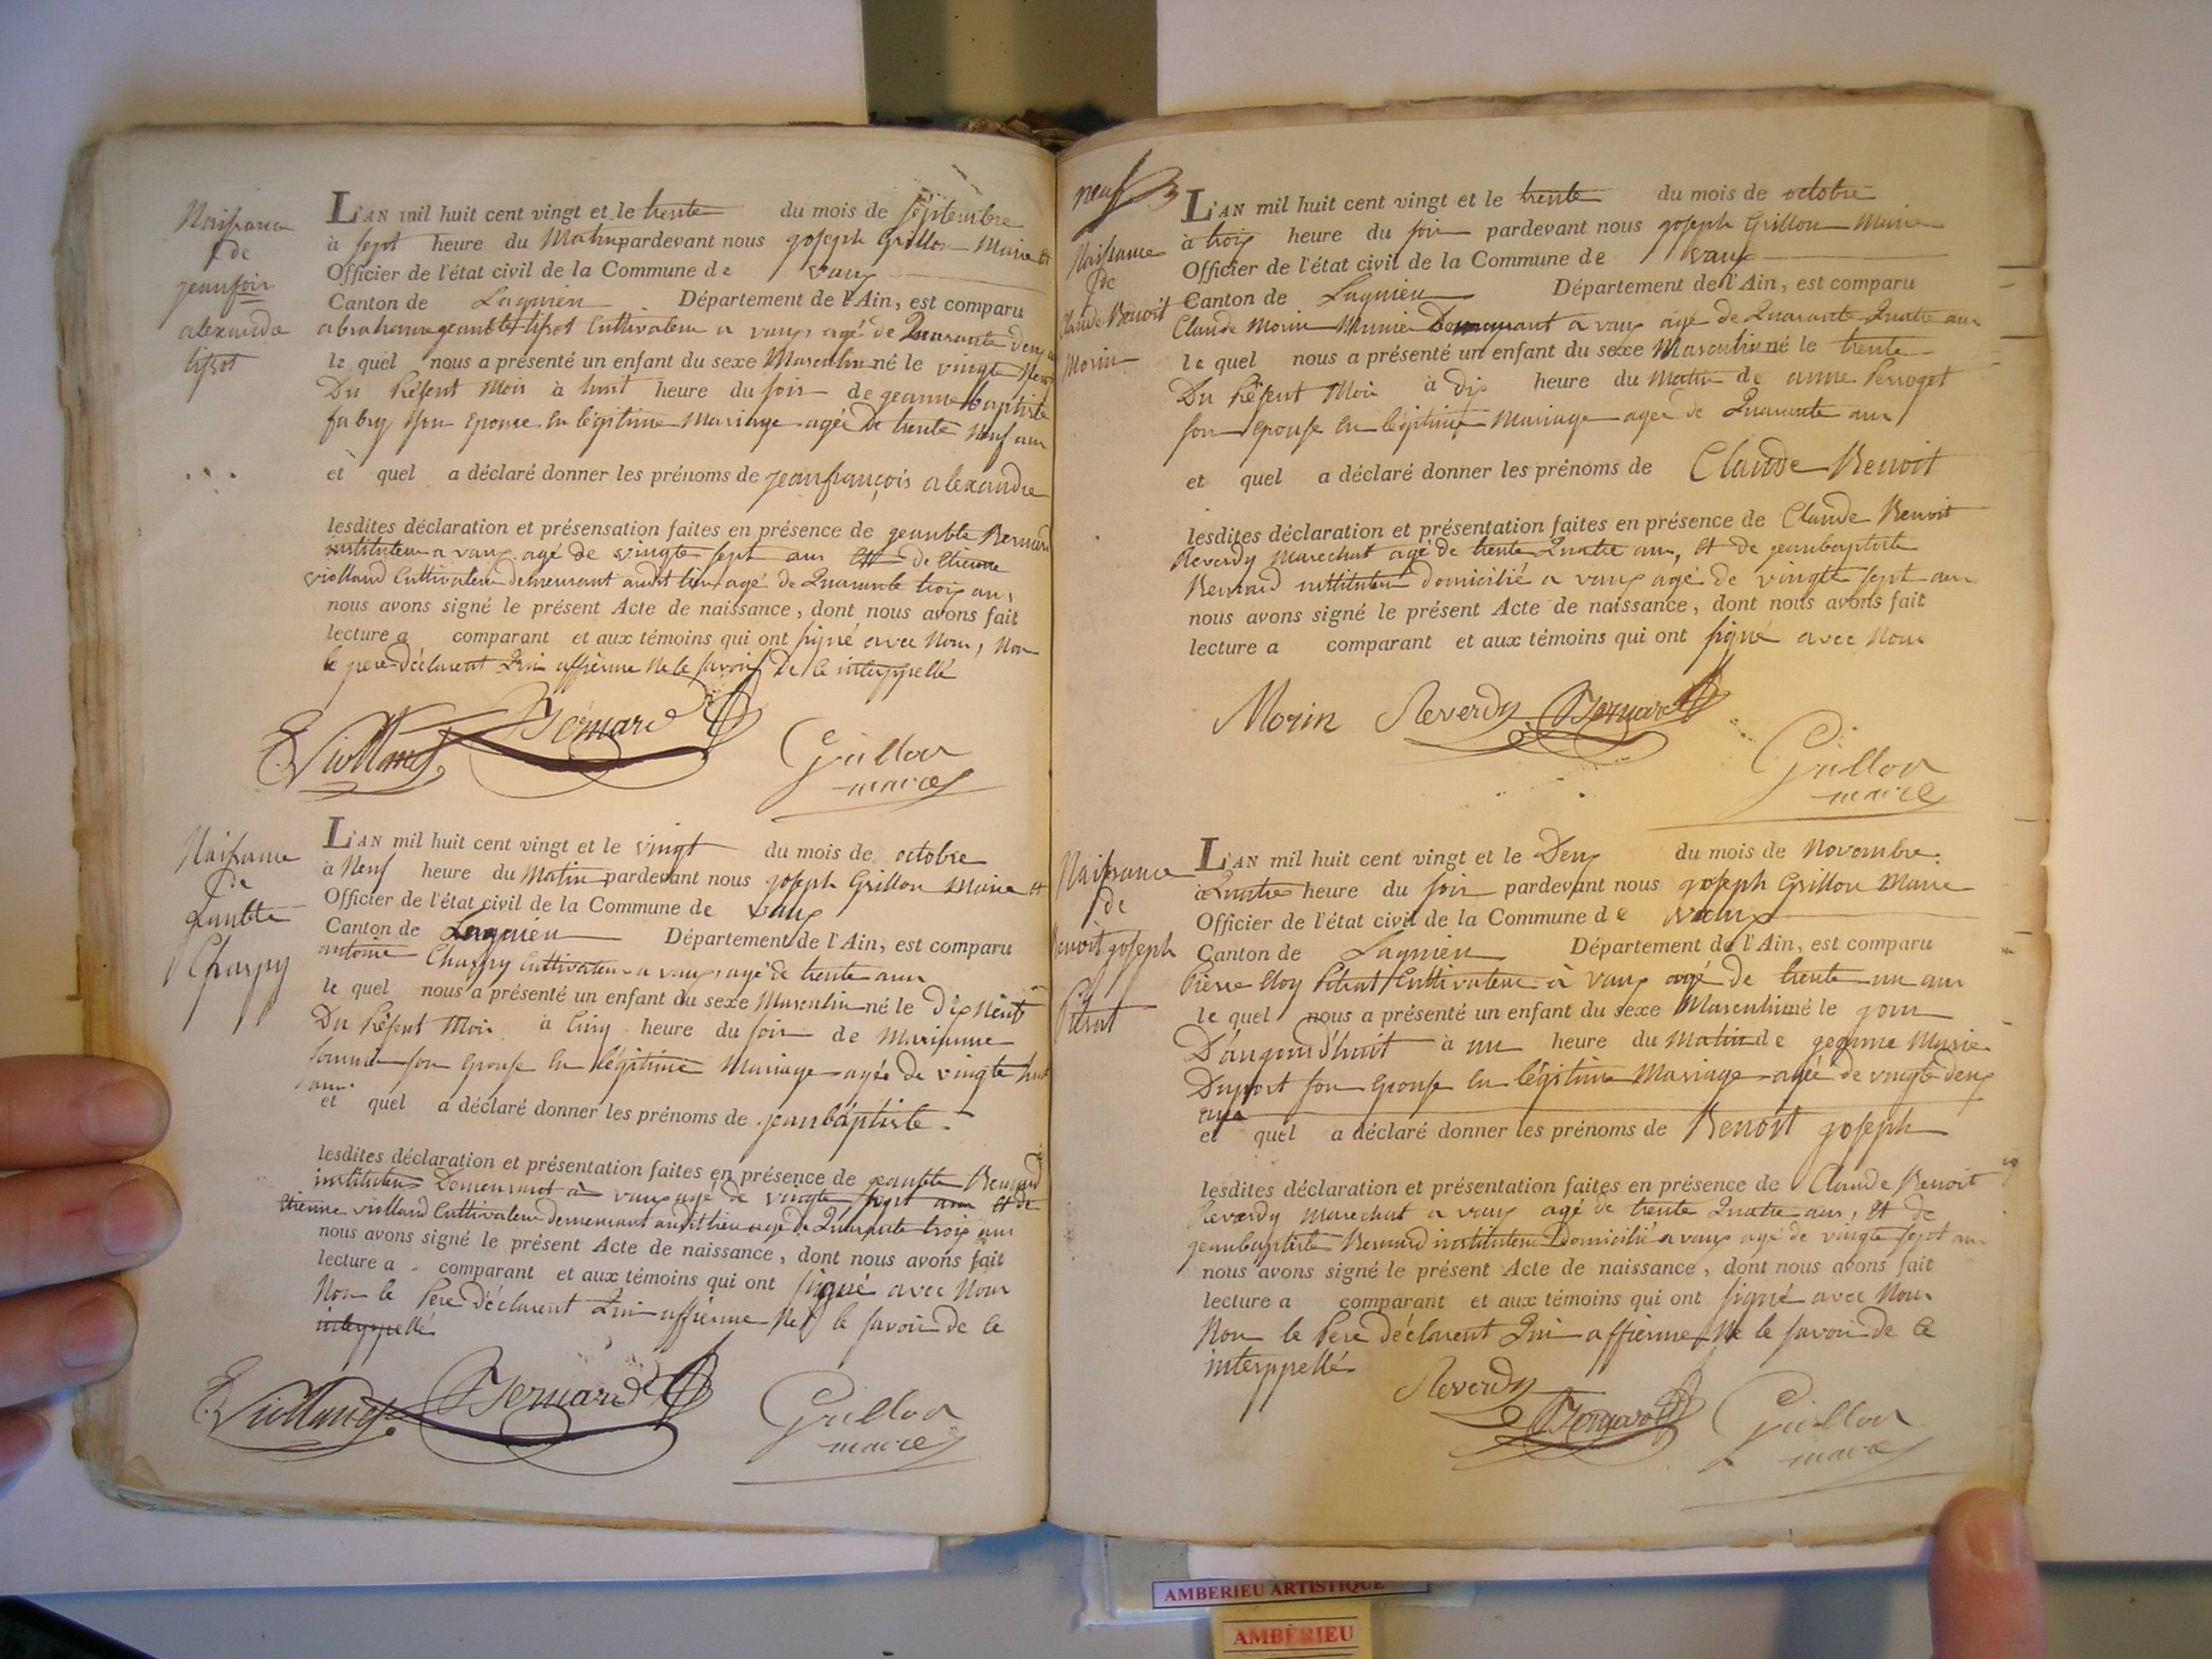 Naissance
de
jeanfois
alexandre
tissot
L'AN mil huit cent vingt et le trente du mois de septembre
à sept heure du Matin pardevant nous joseph Grillon Maire et
Officier de l'état civil de la Commune de vaux
Canton de Lagnieu Département de l'Ain, est comparu
abraham jeanbte tissot Cultivateur a vaux, agé de Quarante deux
le quel nous a présenté un enfant du sexe Masculin né le vingt Neuf
Du Présent Mois à huit heure du soir de jeanne baptiste
fabry son Epouse en légitime Mariage agée de trente Neuf ans
et quel a déclaré donner les prénoms de jeanfrançois alexandre
lesdites déclaration et présensation faites en présence de jeanbte Bernard
instituteur a vaux agé de vingte sept ans et de Etienne
violland Cultivateur demeurant audit lieu agé de Quarante trois ans,
nous avons signé le présent Acte de naissance, dont nous avons fait
lecture a comparant et aux témoins qui ont signé avec Nous, Non
le pere déclarent Qui affierme Ne le savoir De Ce interppellé
E. Violland Bernard Grillon
maire
Naissance
de
jeanbte
Charpy
L'AN mil huit cent vingt et le vingt du mois de octobre
à Neuf heure du Matin pardevant nous joseph Grillon Maire et
Officier de l'état civil de la Commune de vaux
Canton de Lagnieu Département de l'Ain, est comparu
antoine Charpy Cultivateur a vaux, agé de trente ans
le quel nous a présenté un enfant du sexe Masculin né le Dix Neuf
Du Présent Mois à Cinq heure du soir de Marianne
son Epouse en légitime Mariage agée de vingte huit
ans.
et quel a déclaré donner les prénoms de jeanbaptiste.
lesdites déclaration et présentation faites en présence de jeanbte Bernard
instituteur Demeurant à vaux agé de vingte sept ans et de
Etienne violland Cultivateur demeurant audit lieu agé de Quarante trois ans
nous avons signé le présent Acte de naissance, dont nous avons fait
lecture a comparant et aux témoins qui ont signé avec Nous
Non le Pere déclarent Qui affierme Ne le savoir de Ce
interppellé
E. Violland Bernard Grillon
maire
neuf
Naissance
de
Claude Benoit
Morin
L'AN mil huit cent vingt et le trente du mois de octobre
à trois heure du soir pardevant nous joseph Grillon Maire
Officier de l'état civil de la Commune de vaux
Canton de Lagnieu Département de l'Ain, est comparu
Claude Morin Meunier Demeurant a vaux agé de Quarante Quatre ans
le quel nous a présenté un enfant du sexe Masculin né le trente
Du Présent Mois à Dix heure du Matin de anne Perroget
son Epouse en légitime Mariage agée de Quarante ans
et quel a déclaré donner les prénoms de Claude Benoit
lesdites déclaration et présentation faites en présence de Claude Benoit
Reverdy Marechat agé de trente Quatre ans, et de jeanbaptiste
Bernard instituteur domicilié a vaux agé de vingte sept ans
nous avons signé le présent Acte de naissance, dont nous avons fait
lecture a comparant et aux témoins qui ont signé avec Nous
Morin Reverdy Bernard
Grillon
maire
Naissance
de
Benoit joseph
Pitrat
L'AN mil huit cent vingt et le Deux du mois de Novembre.
à Quatre heure du soir pardevant nous joseph Grillon Maire
Officier de l'état civil de la Commune de vaux
Canton de Lagnieu Département de l'Ain, est comparu
Pierre Eloy Pitrat Cultivateur à vaux agé de trente un ans
le quel nous a présenté un enfant du sexe Masculin né le jour
D'aujourd'huit à un heure du Matin de jeanne Marie
Duport son Epouse en légitime Mariage agée de vingte deux
ans
et quel a déclaré donner les prénoms de Benoit joseph
lesdites déclaration et présentation faites en présence de Claude Benoit
Reverdy Marechat a vaux agé de trente Quatre ans, et de
jeanbaptiste Bernard instituteur Domicilié a vaux agé de vingte sept ans
nous avons signé le présent Acte de naissance, dont nous avons fait
lecture a comparant et aux témoins qui ont signé avec Nous
Non le Pere déclarent Qui affierme Ne le savoir de Ce
interppellé
Reverdy
Bernard Grillon
maire
AMBERIEU ARTISTIQUE
AMBÉRIEU